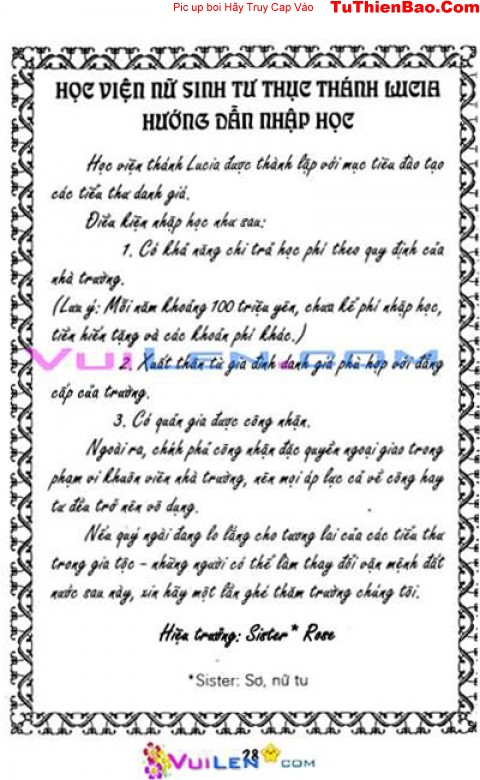 Pic up boi Hãy Truy Cap Vào TuThienBao.Com
HỌC VIỆN NỮ SINH TƯ THỤC THÁNH LUCIA
HƯỚNG DẪN NHẬP HỌC
Học viện thánh Lucia được thành lập với mục tiêu đào tạo
các tiểu thư danh giá.
Điều kiện nhập học như sau:
1. Có khả năng chi trả học phí theo quy định của
nhà trường.
(Lưu ý: Mỗi năm khoảng 100 triệu yên, chưa kể phí nhập học,
tiền hiến tặng và các khoản phí khác.)
VuiLen.com
2. Xuất thân từ gia đình danh giá phù hợp với đẳng
cấp của trường.
3. Có quản gia được công nhận.
Ngoài ra, chính phủ công nhận đặc quyền ngoại giao trong
phạm vi khuôn viên nhà trường, nên mọi áp lực cả về công hay
tư đều trở nên vô dụng.
Nếu quý ngài đang lo lắng cho tương lai của các tiểu thư
trong gia tộc - những người có thể làm thay đổi vận mệnh đất
nước sau này, xin hãy một lần ghé thăm trường chúng tôi.
Hiệu trưởng: Sister* Rose
*Sister: Sơ, nữ tu
28
VuiLen.com